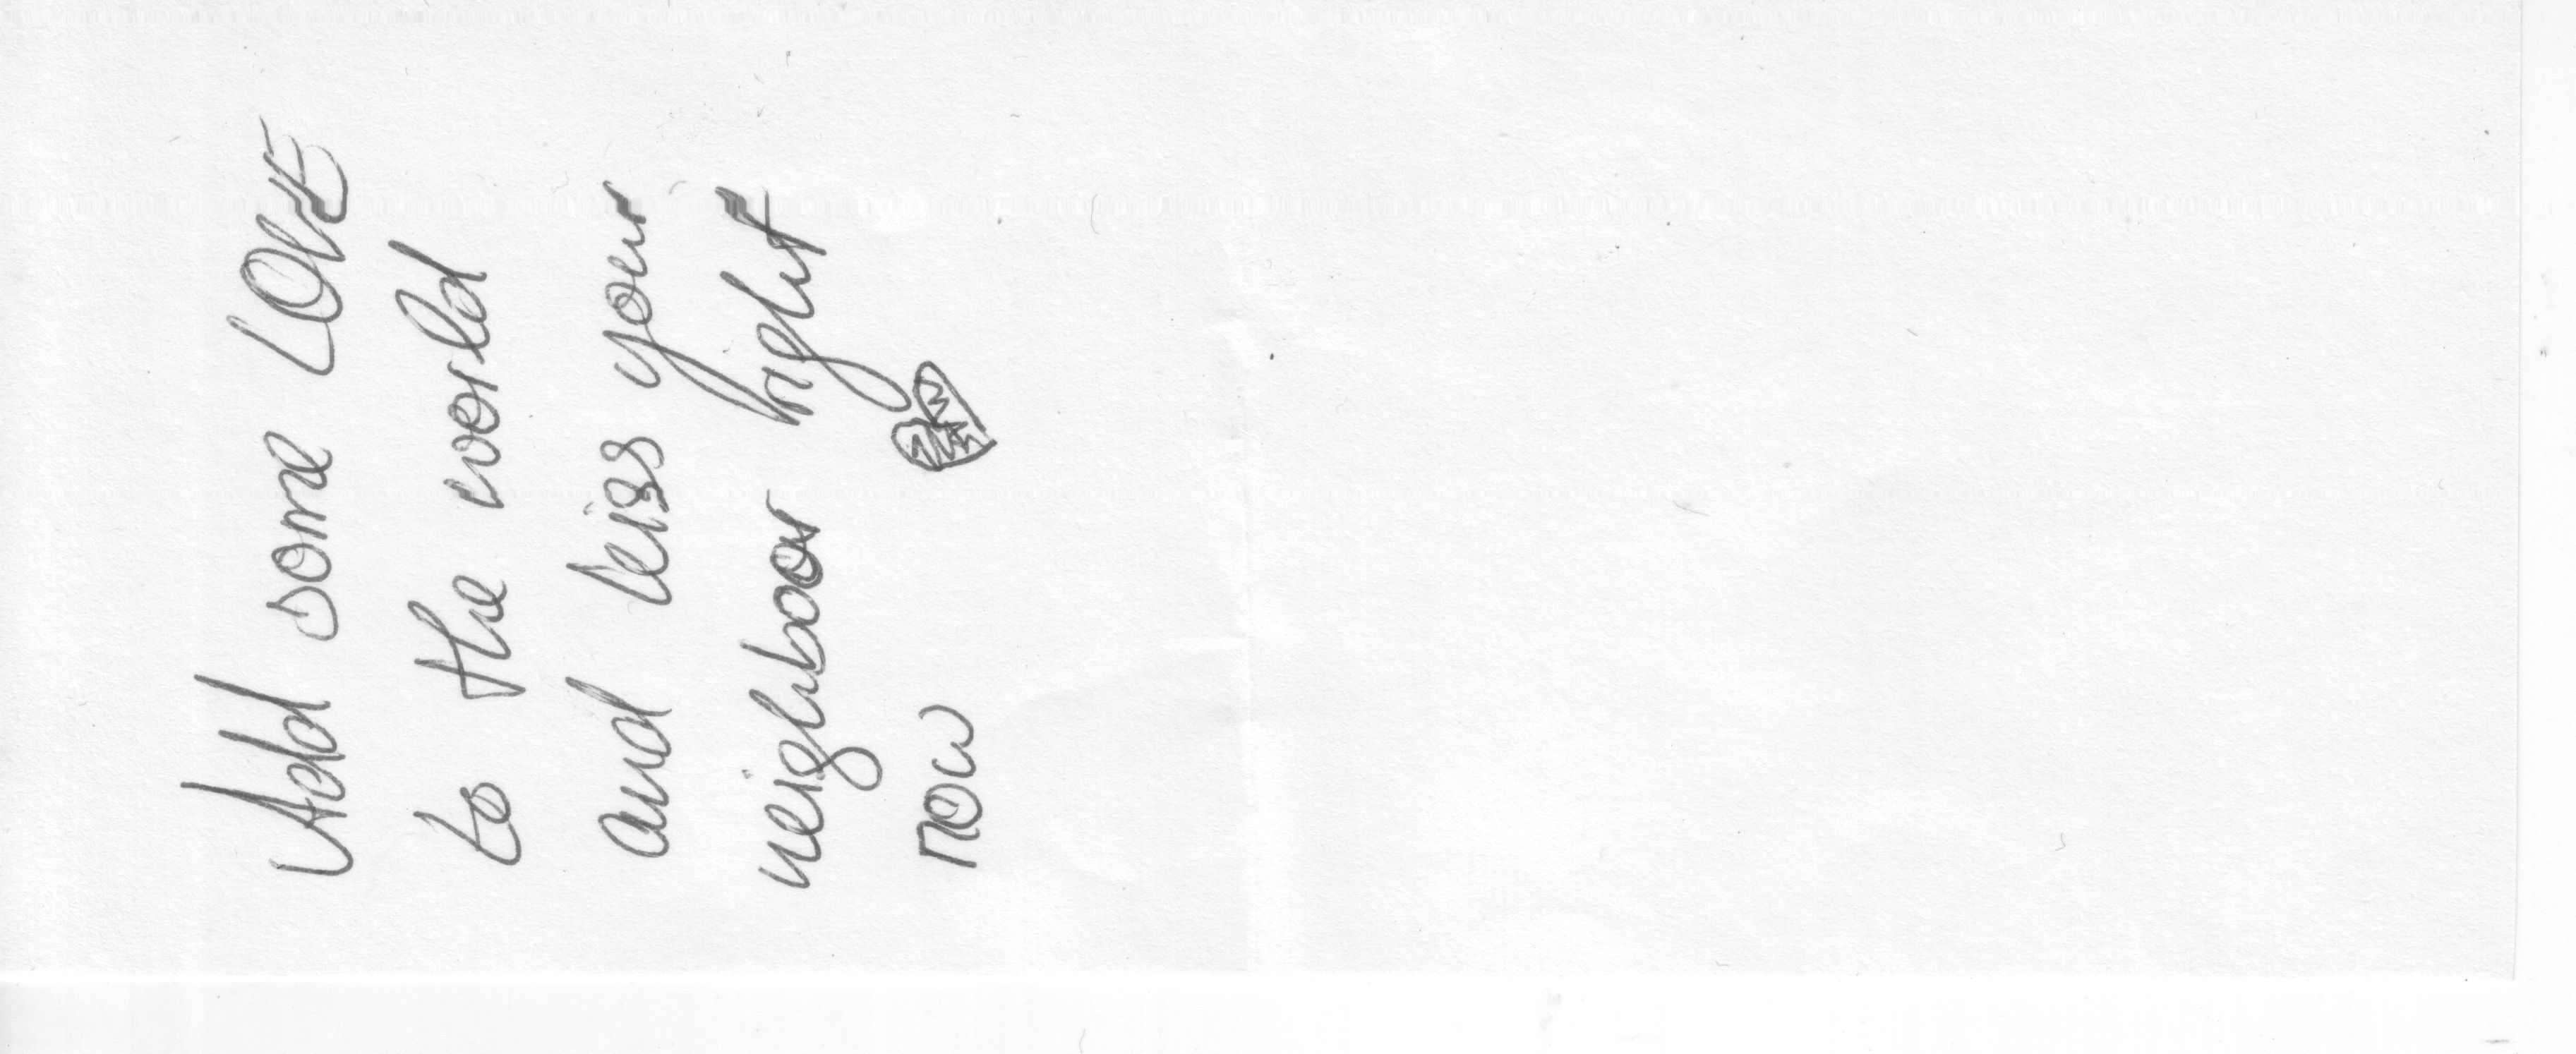 Add some LOVE
to the world
and kiss your
neighboor right
now